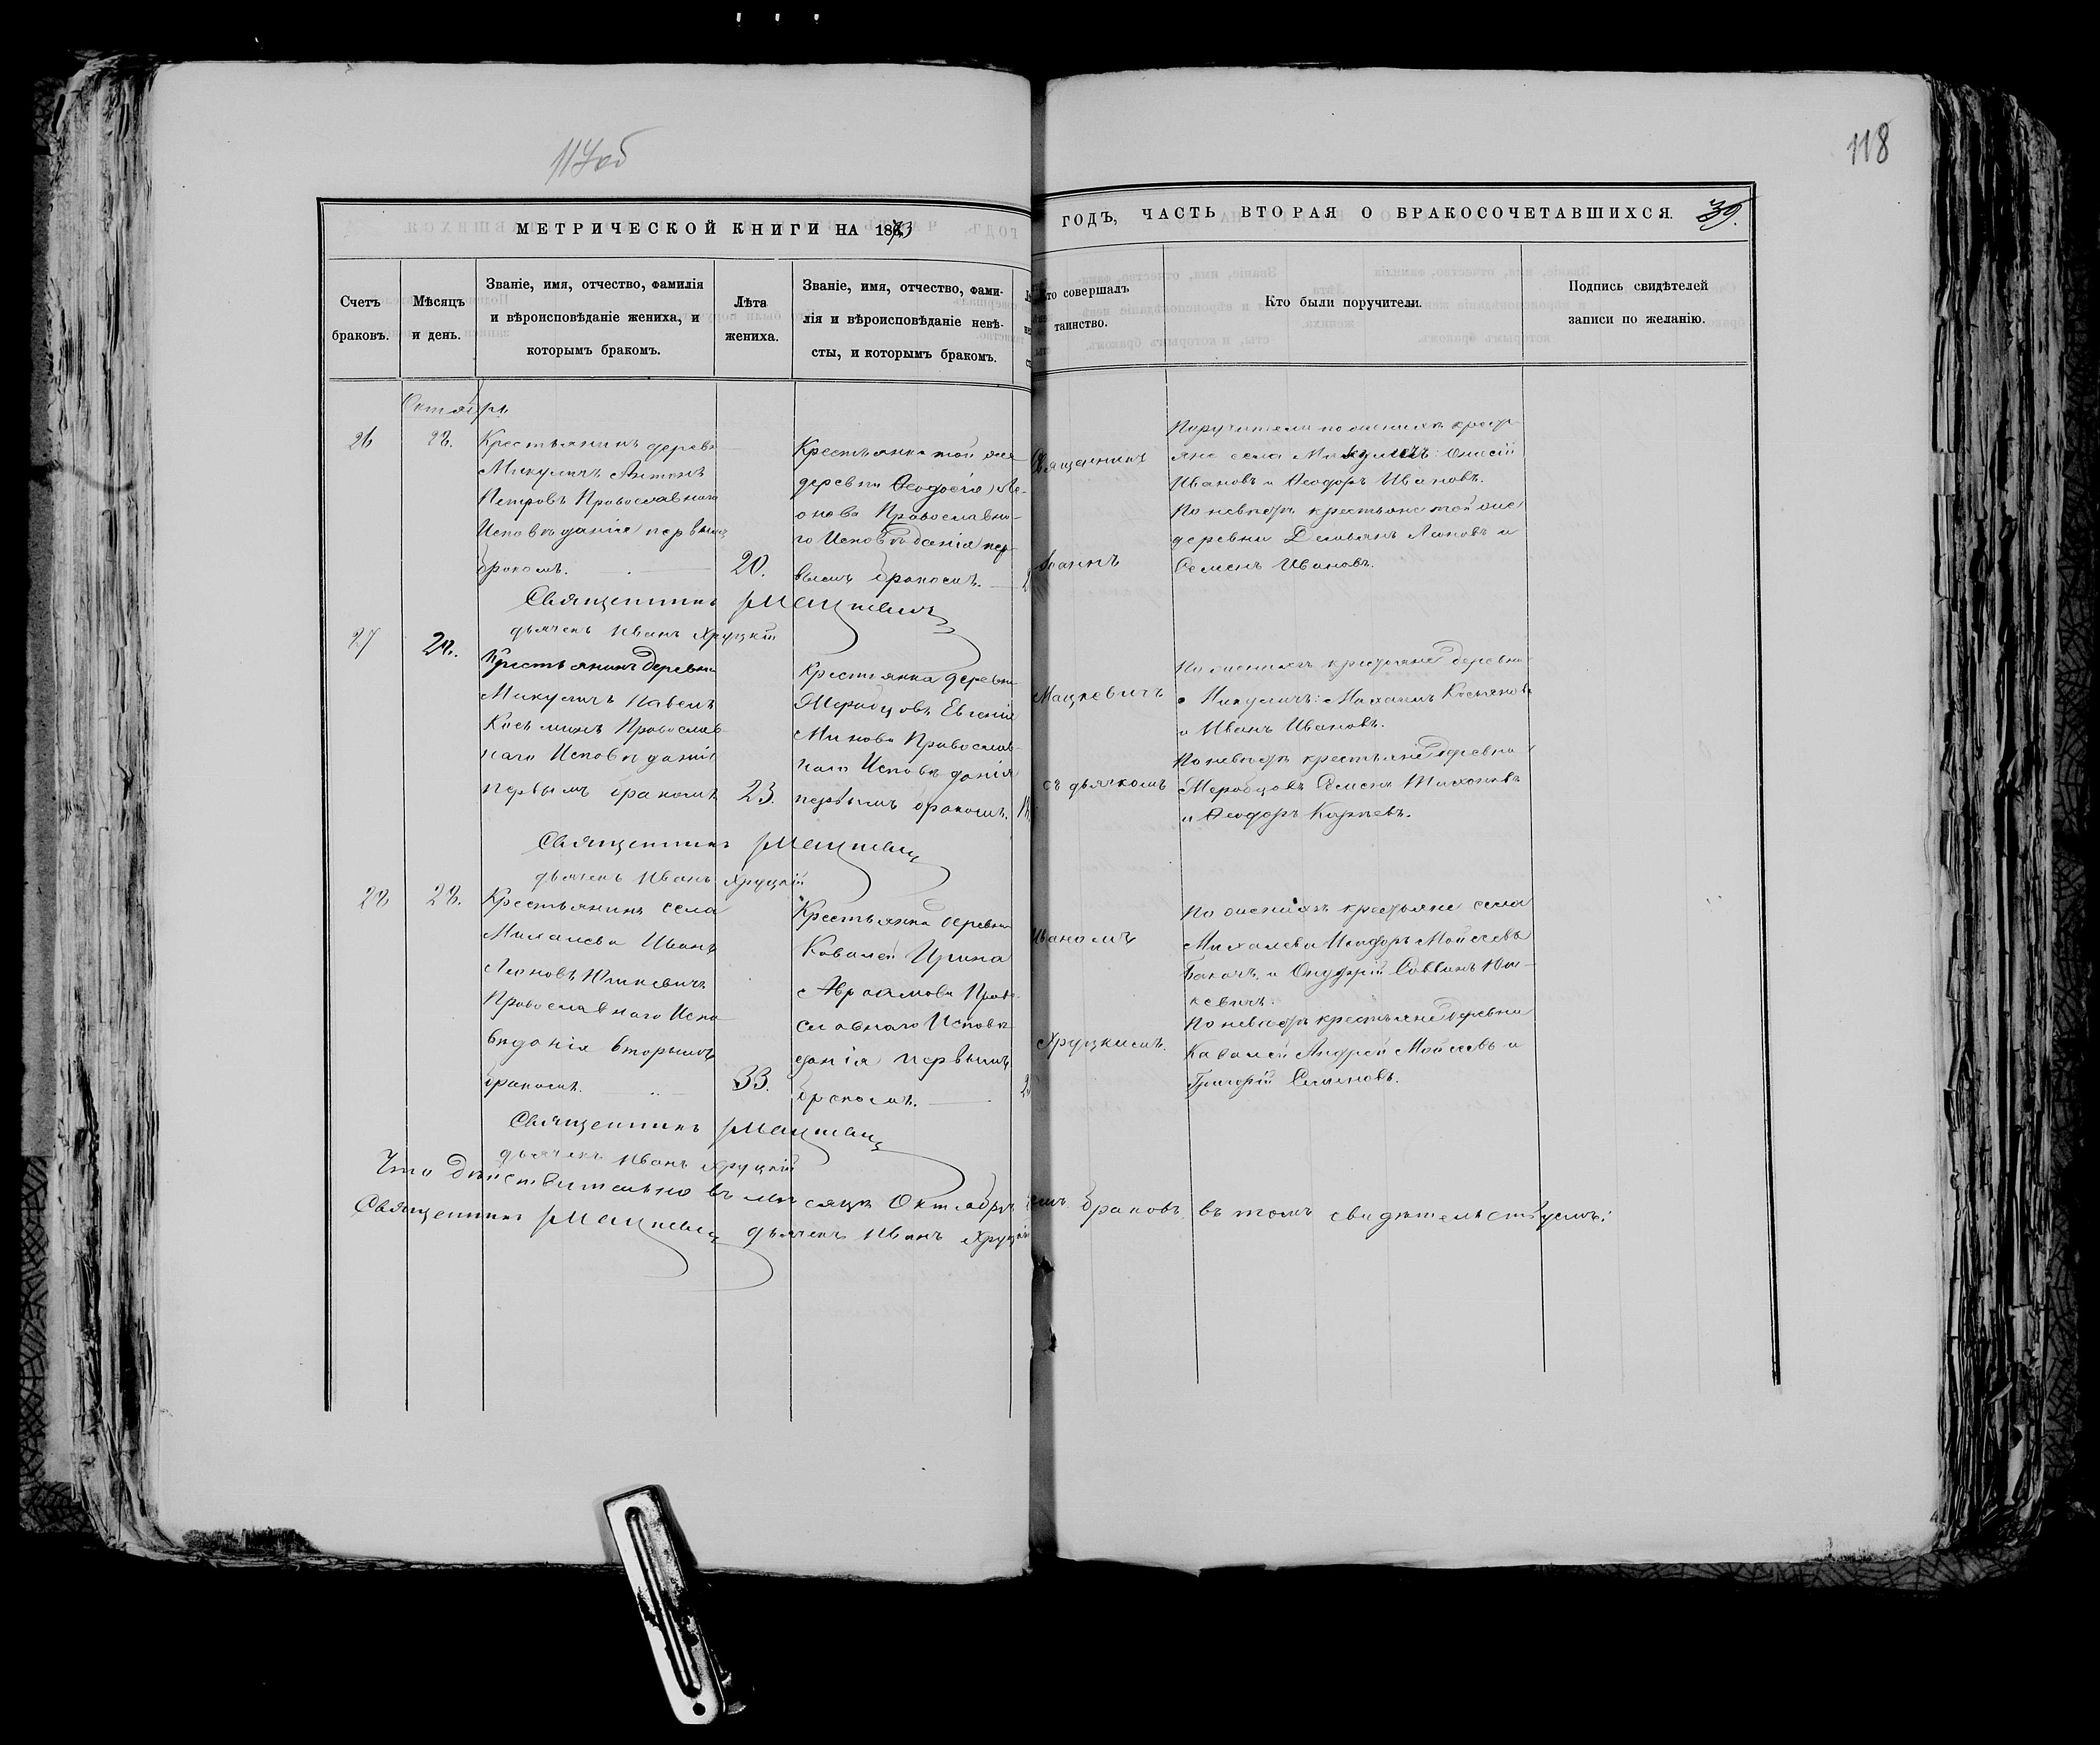 117об
118
МЕТРИЧЕСКОЙ КНИГИ НА 1873
ГОДЪ, ЧАСТЬ ВТОРАЯ О БРАКОСОЧЕТАВШИХСЯ.
39.
Счетъ
браковъ.
Мѣсяцъ
и день.
Званіе, имя, отчество, фамилія
и вѣроисповѣданіе жениха, и
которымъ бракомъ.
Лѣта
жениха.
Званіе, имя, отчество, фами-
лія и вѣроисповѣданіе невѣ-
сты, и которымъ бракомъ.
Кто совершалъ
таинство.
Кто были поручители.
Подпись свидѣтелей
записи по желанію.
Октябрь
26
28.
Крестьянинъ деревни
Микуличъ Антонъ
Петровъ Православнаго
Исповѣданія первымъ
бракомъ.
20.
Крестьянка той же
деревни Ѳеодосія Ле-
онова Православна-
го Исповѣданія пер-
вымъ бракомъ.
Священникъ
Іоаннъ
Поручители по женихѣ кресть-
яне села Микуличъ: Онисій
Ивановъ и Ѳеодоръ Ивановъ.
По невѣстѣ крестьяне той же
деревни Демьянъ Леоновъ и
Семенъ Ивановъ.
Священникъ Мацкевичъ
дьячекъ Иванъ Хруцкій
27
28.
Крестьянинъ деревни
Микуличъ Павелъ
Косьминъ Православ-
наго Исповѣданія
первымъ бракомъ
23.
Крестьянка деревни
Жеробцовъ Евгенія
Минова Православ-
наго Исповѣданія
первымъ бракомъ.
Мацкевичъ
съ дьячкомъ
По женихѣ крестьяне деревни
Микуличъ: Михаилъ Косьминовъ
и Иванъ Ивановъ.
По невѣстѣ крестьяне деревни
Жеробцовъ Семенъ Тихоновъ
и Ѳеодоръ Карпевъ.
Священникъ Мацкевичъ
дьячекъ Иванъ Хруцкій
28
28.
Крестьянинъ села
Михалева Иванъ
Леоновъ Юшкевичъ
Православнаго Испо-
вѣданія вторымъ
бракомъ.
33.
Крестьянка деревни
Ковалей Ирина
Авраамова Право-
славнаго Исповѣ-
данія первымъ
бракомъ.
Иваномъ
Хруцкимъ.
По женихѣ крестьяне села
Михалева Исидоръ Моисеевъ
Бакачъ и Онуфрій Саввинъ Юш-
кевичъ.
По невѣстѣ крестьяне деревни
Ковалей Андрей Моисеевъ и
Григорій Семеновъ.
Священникъ Мацкевичъ
дьячекъ Иванъ Хруцкій
Что дѣйствительно въ мѣсяцѣ Октябрѣ браковъ въ томъ свидѣтельствуемъ:
Священникъ Мацкевичъ дьячекъ Иванъ Хруцкій